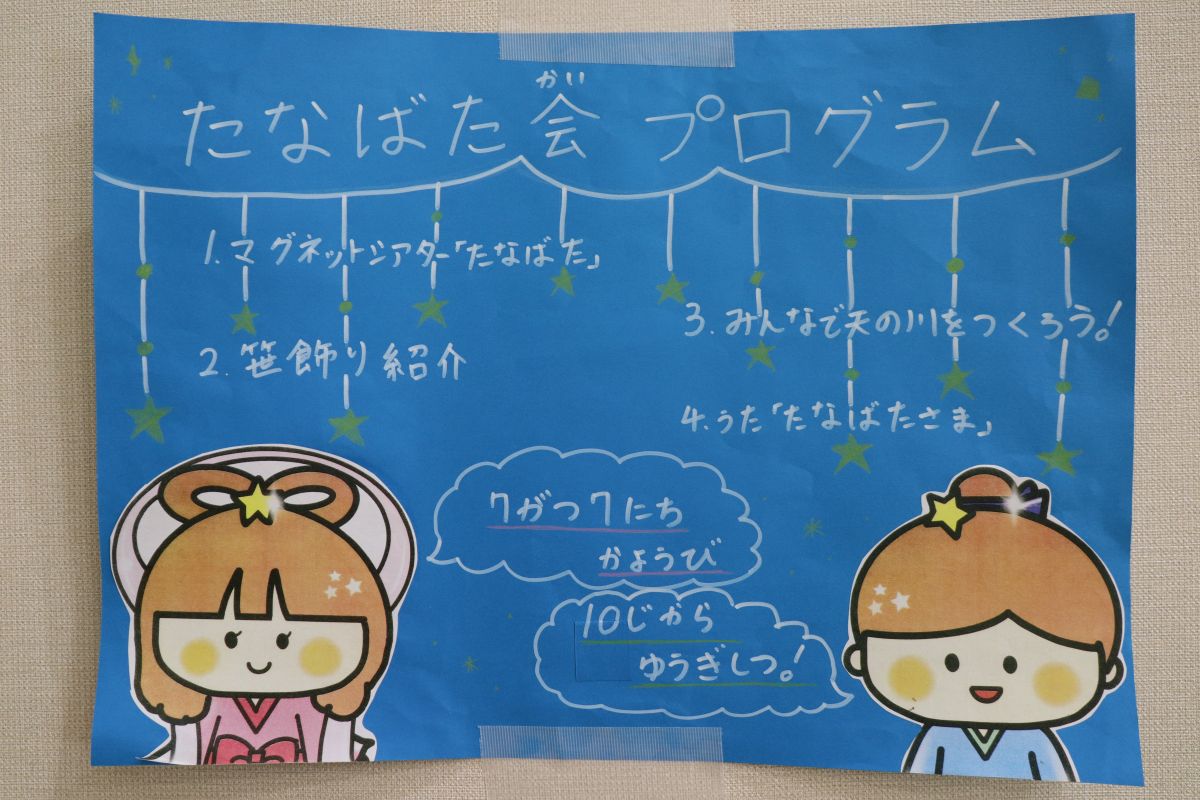 かい
たなばた会 プログラム
1.マグネットシアター「たなばた」
2.笹飾り紹介
3.みんなで天の川をつくろう!
4.うた「たなばたさま」
7がつ7にち
かようび
10じから
ゆうぎしつ!